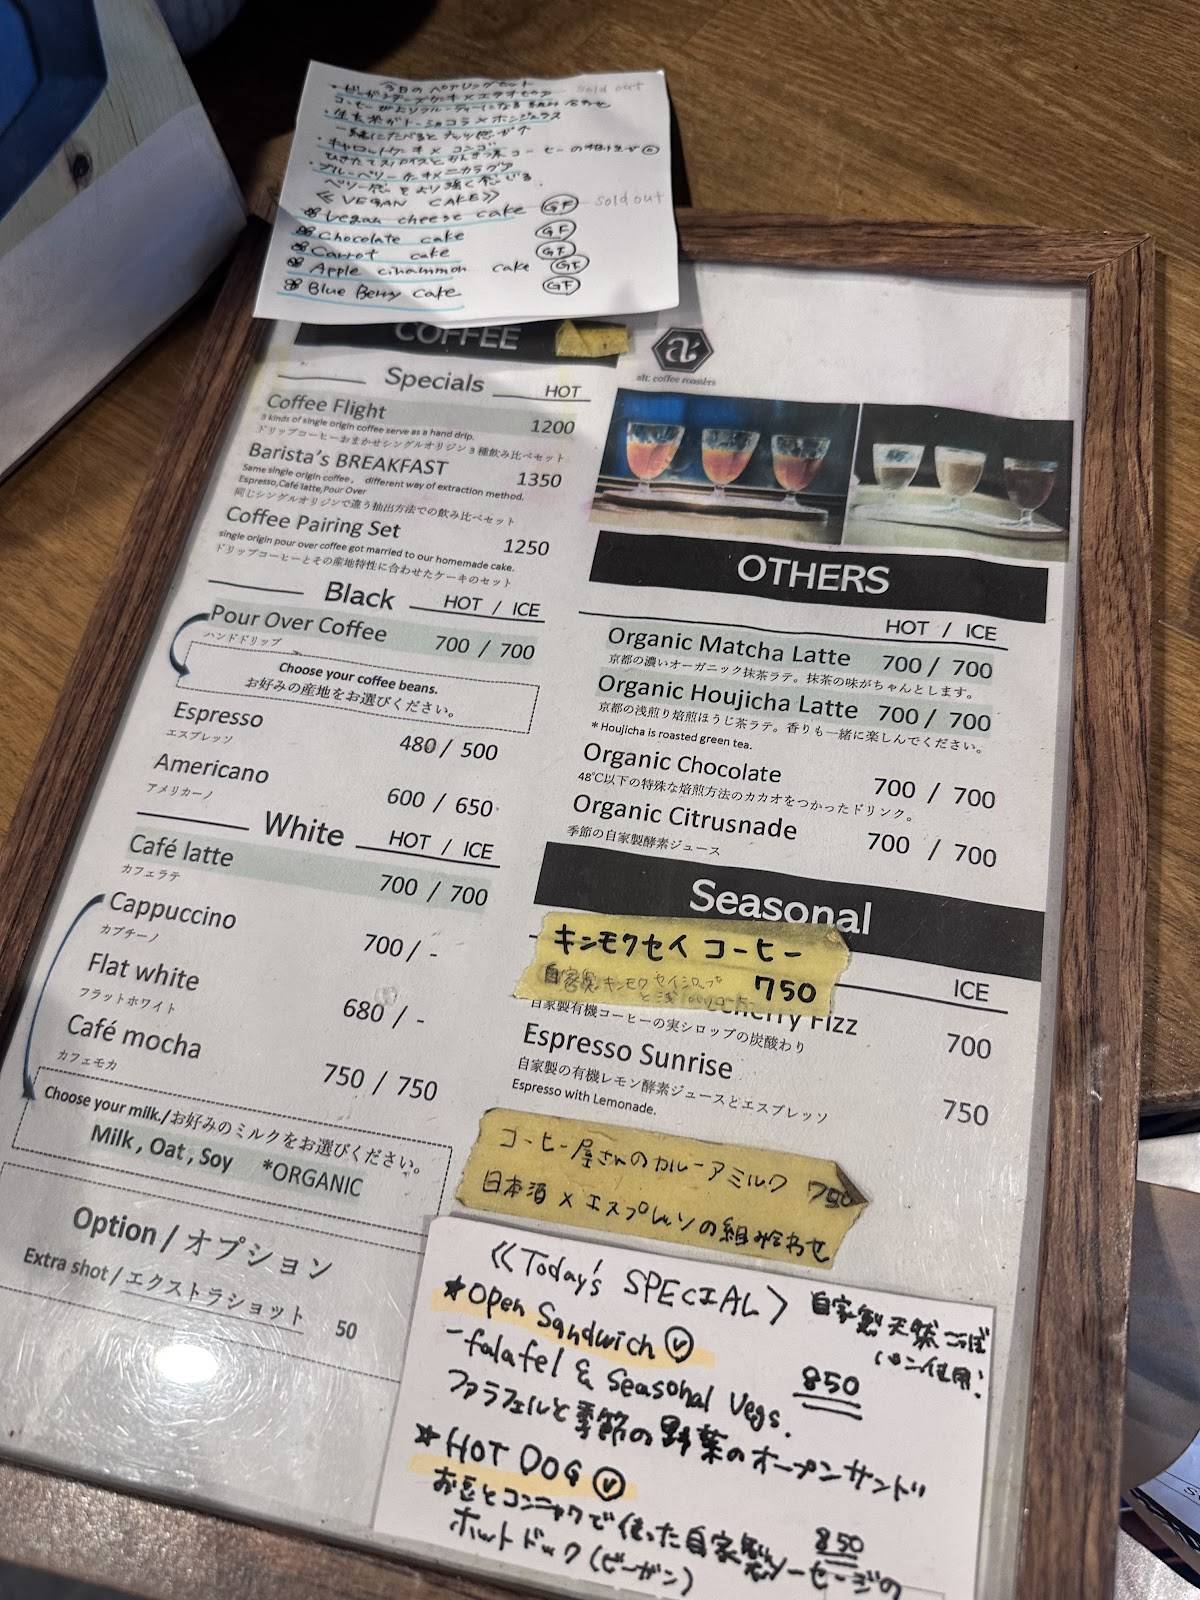 今日のペアリングセット
sold out
コーヒーがよりフルーティーになる組み合わせ
一緒にたべると
ブルーベリー
ベリー感をより強く感じる。
≪VEGAN CAKE≫
Vegan cheese cake GF sold out
Chocolate cake GF
Carrot cake GF
Apple cinammon cake GF
Blue Berry cake GF
COFFEE
Specials HOT
Coffee Flight 1200
3 kinds of single origin coffee serve as a hand drip.
ドリップコーヒーおまかせシングルオリジン3種飲み比べセット
Barista's BREAKFAST 1350
Same single origin coffee, different way of extraction method.
Espresso,Café latte,Pour Over
同じシングルオリジンで違う抽出方法での飲み比べセット
Coffee Pairing Set 1250
single origin pour over coffee got married to our homemade cake.
ドリップコーヒーとその産地特性に合わせたケーキのセット
Black HOT / ICE
Pour Over Coffee 700 / 700
ハンドドリップ
Choose your coffee beans.
お好みの産地をお選びください。
Espresso 480 / 500
エスプレッソ
Americano 600 / 650
アメリカーノ
White HOT / ICE
Café latte 700 / 700
カフェラテ
Cappuccino 700 / -
カプチーノ
Flat white 680 / -
フラットホワイト
Café mocha 750 / 750
カフェモカ
Choose your milk./お好みのミルクをお選びください。
Milk , Oat , Soy *ORGANIC
Option / オプション
Extra shot / エクストラショット 50
a:
alt. coffee roasters
OTHERS
HOT / ICE
Organic Matcha Latte 700 / 700
京都の濃いオーガニック抹茶ラテ。抹茶の味がちゃんとします。
Organic Houjicha Latte 700 / 700
京都の浅煎り焙煎ほうじ茶ラテ。香りも一緒に楽しんでください。
*Houjicha is roasted green tea.
Organic Chocolate 700 / 700
48℃以下の特殊な焙煎方法のカカオをつかったドリンク。
Organic Citrusnade 700 / 700
季節の自家製酵素ジュース
Seasonal
キンモクセイ コーヒー
自家製キンモクセイシロップ 750
ICE
cherry Fizz 700
自家製有機コーヒーの実シロップの炭酸わり
Espresso Sunrise 750
自家製の有機レモン酵素ジュースとエスプレッソ
Espresso with Lemonade.
コーヒー屋さんのカルーアミルク
日本酒 × エスプレッソの組み合わせ
≪Today's SPECIAL≫
自家製天然こうぼ
パン使用!
★Open Sandwich V
-falafel & Seasonal Vegs. 850
ファラフェルと季節の野菜のオープンサンド
★HOT DOG V
お豆とコンニャクで使った自家製ソーセージの 850
ホットドック(ビーガン)